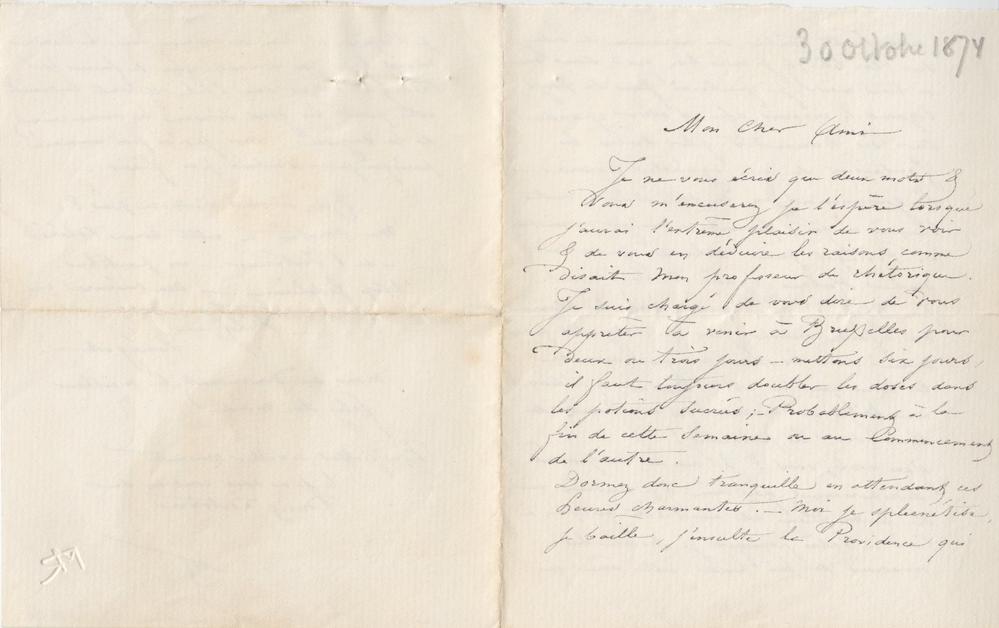 30 octobre 1874
Mon Cher Ami
Je ne vous écris que deux mots &
Vous m'excuserez je l'espère lorsque
j'aurai l'extrême plaisir de vous voir
& de vous en déduire les raisons comme
disait mon professeur de rhétorique.
Je suis chargé de vous dire de vous
appreter à venir à Bruxelles pour
deux ou trois jours — mettons six jours,
il faut toujours doubler les doses dans
les potions sucrées ; — Probablement à la
fin de cette semaine ou au Commencement
de l'autre.
Dormez donc tranquille en attendant ces
heures charmantes. — Moi je splenétise,
je baille, j'insulte la Providence qui